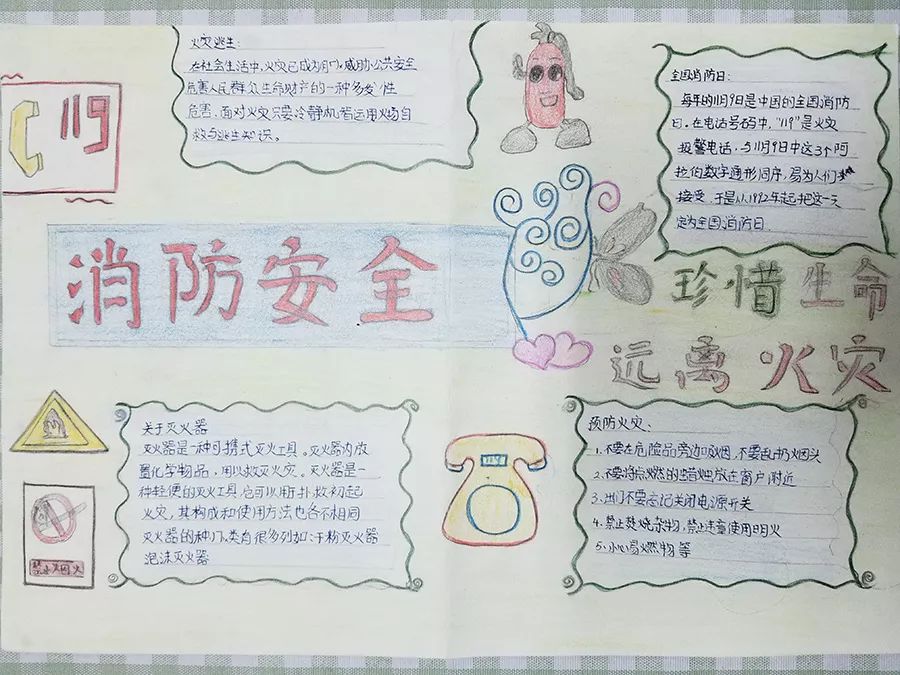 火灾逃生:
在社会生活中,火灾已成为时,威胁公共安全
危害人民群众生命财产的一种多发性
危害.面对火灾只要冷静机智运用火场自
救与逃生知识。
119
全国消防日:
每年的11月9日是中国的全国消防
日。在电话号码中,"119"是火灾
报警电话,与11月9日中这3个阿
拉伯数字通形同序,易为人们
接受.于是从1992年起把这一天
定为全国消防日
消防安全
珍惜生命
远离火灾
关于灭火器
灭火器是一种可携式灭火工具。灭火器内放
置化学物品,用以救灭火灾。灭火器是一
种轻便的灭火工具,它可以用于扑救初起
火灾,其构成和使用方法也各不相同
灭火器的种类有很多列如:干粉灭火器
泡沫灭火器
禁止烟火
预防火灾:
1.不要在危险品旁边吸烟,不要乱扔烟头
2.不要将点燃的蜡烛放在窗户附近
3.出门不要忘记关闭电源开关
4.禁止焚烧杂物,禁止违章使用明火
5.小心易燃物等